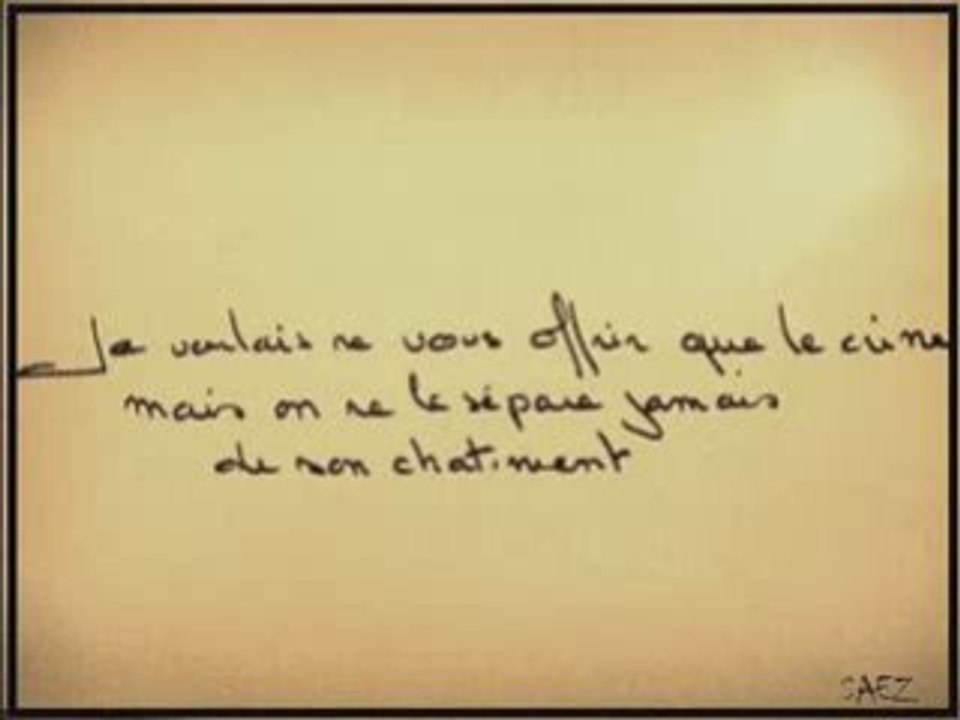 Je voulais ne vous offrir que le crime
mais on ne le sépare jamais
de son chatiment
SAEZ